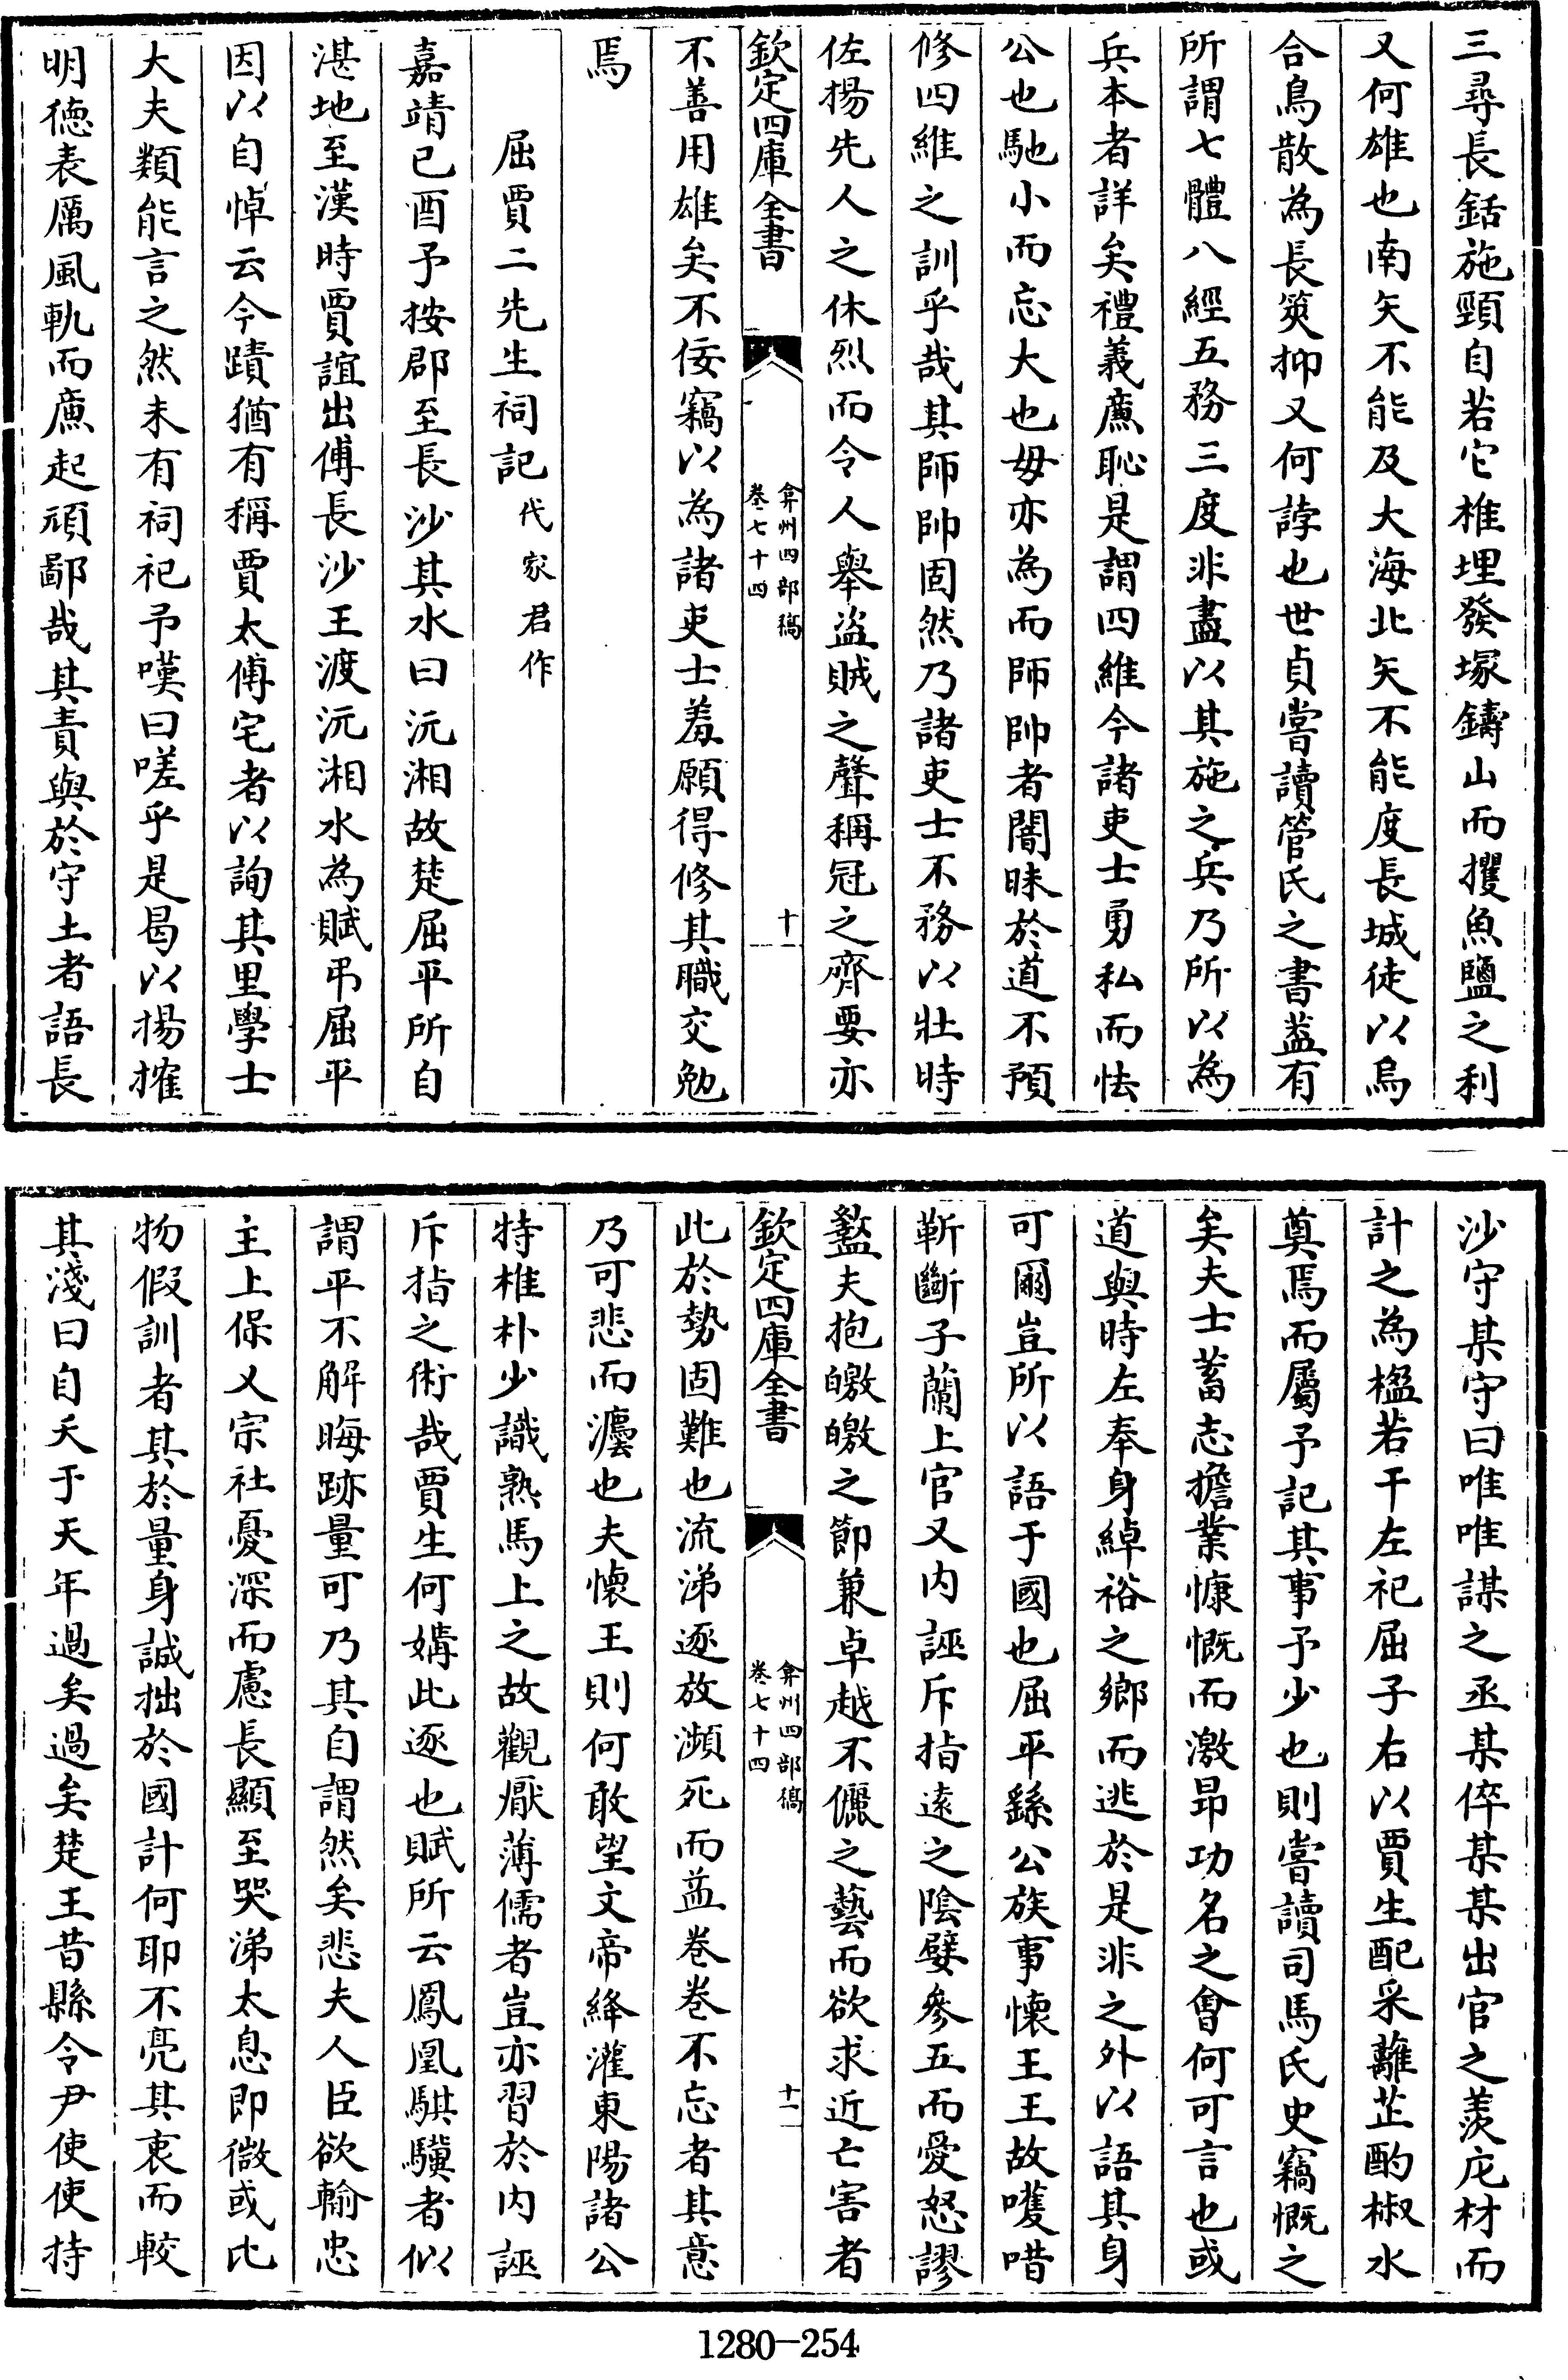 三尋長銛施頸自若它椎埋發塚鑄山而攫魚鹽之利
又何雄也南矢不能及大海北矢不能度長城徒以烏
合鳥散為長筴抑又何誖也世貞嘗讀管氏之書葢有
所謂七體八經五務三度非盡以其施之兵乃所以為
兵本者詳矣禮義廉恥是謂四維今諸吏士勇私而怯
公也馳小而忘大也毋亦為而師帥者闇昧於道不預
修四維之訓乎哉其師帥固然乃諸吏士不務以壯時
佐揚先人之休烈而令人舉盜賊之聲稱冠之齊要亦
欽定四庫全書
弇州四部稿
卷七十四
十
不善用雄矣不佞竊以為諸吏士羞願得修其職交勉
焉
屈賈二先生祠記代家君作
嘉靖已酉予按郡至長沙其水曰沅湘故楚屈平所自
湛地至漢時賈誼出傅長沙王渡沅湘水為賦弔屈平
因以自悼云今蹟猶有稱賈太傅宅者以詢其里學士
大夫類能言之然未有祠祀予嘆曰嗟乎是曷以揚搉
明德表厲風軌而廉起頑鄙哉其責與於守土者語長
沙守某守曰唯唯謀之丞某倅某某出官之羨庀材而
計之為楹若干左祀屈子右以賈生配采蘺芷酌椒水
奠焉而屬予記其事予少也則嘗讀司馬氏史竊慨之
矣夫士蓄志擔業慷慨而激昂功名之會何可言也或
道與時左奉身綽裕之鄉而逃於是非之外以語其身
可爾豈所以語于國也屈平繇公族事懷王王故嚄唶
靳斷子蘭上官又内誣斥指遠之陰嬖參五而愛怒謬
盭夫抱皦皦之節兼卓越不儷之藝而欲求近亡害者
欽定四庫全書
弇州四部稿
卷七十四
十一
此於勢固難也流涕逐放瀕死而葢卷卷不忘者其意
乃可悲而灋也夫懷王則何敢望文帝絳灌東陽諸公
特椎朴少識熟馬上之故觀厭薄儒者豈亦習於内誣
斥指之術哉賈生何媾此逐也賦所云鳳凰騏驥者似
謂平不解晦跡量可乃其自謂然矣悲夫人臣欲輸忠
主上保乂宗社憂深而慮長顯至哭涕太息即微或比
物假訓者其於量身誠拙於國計何耶不亮其衷而較
其淺曰自夭于天年過矣過矣楚王昔縣令尹使使持
1280-254